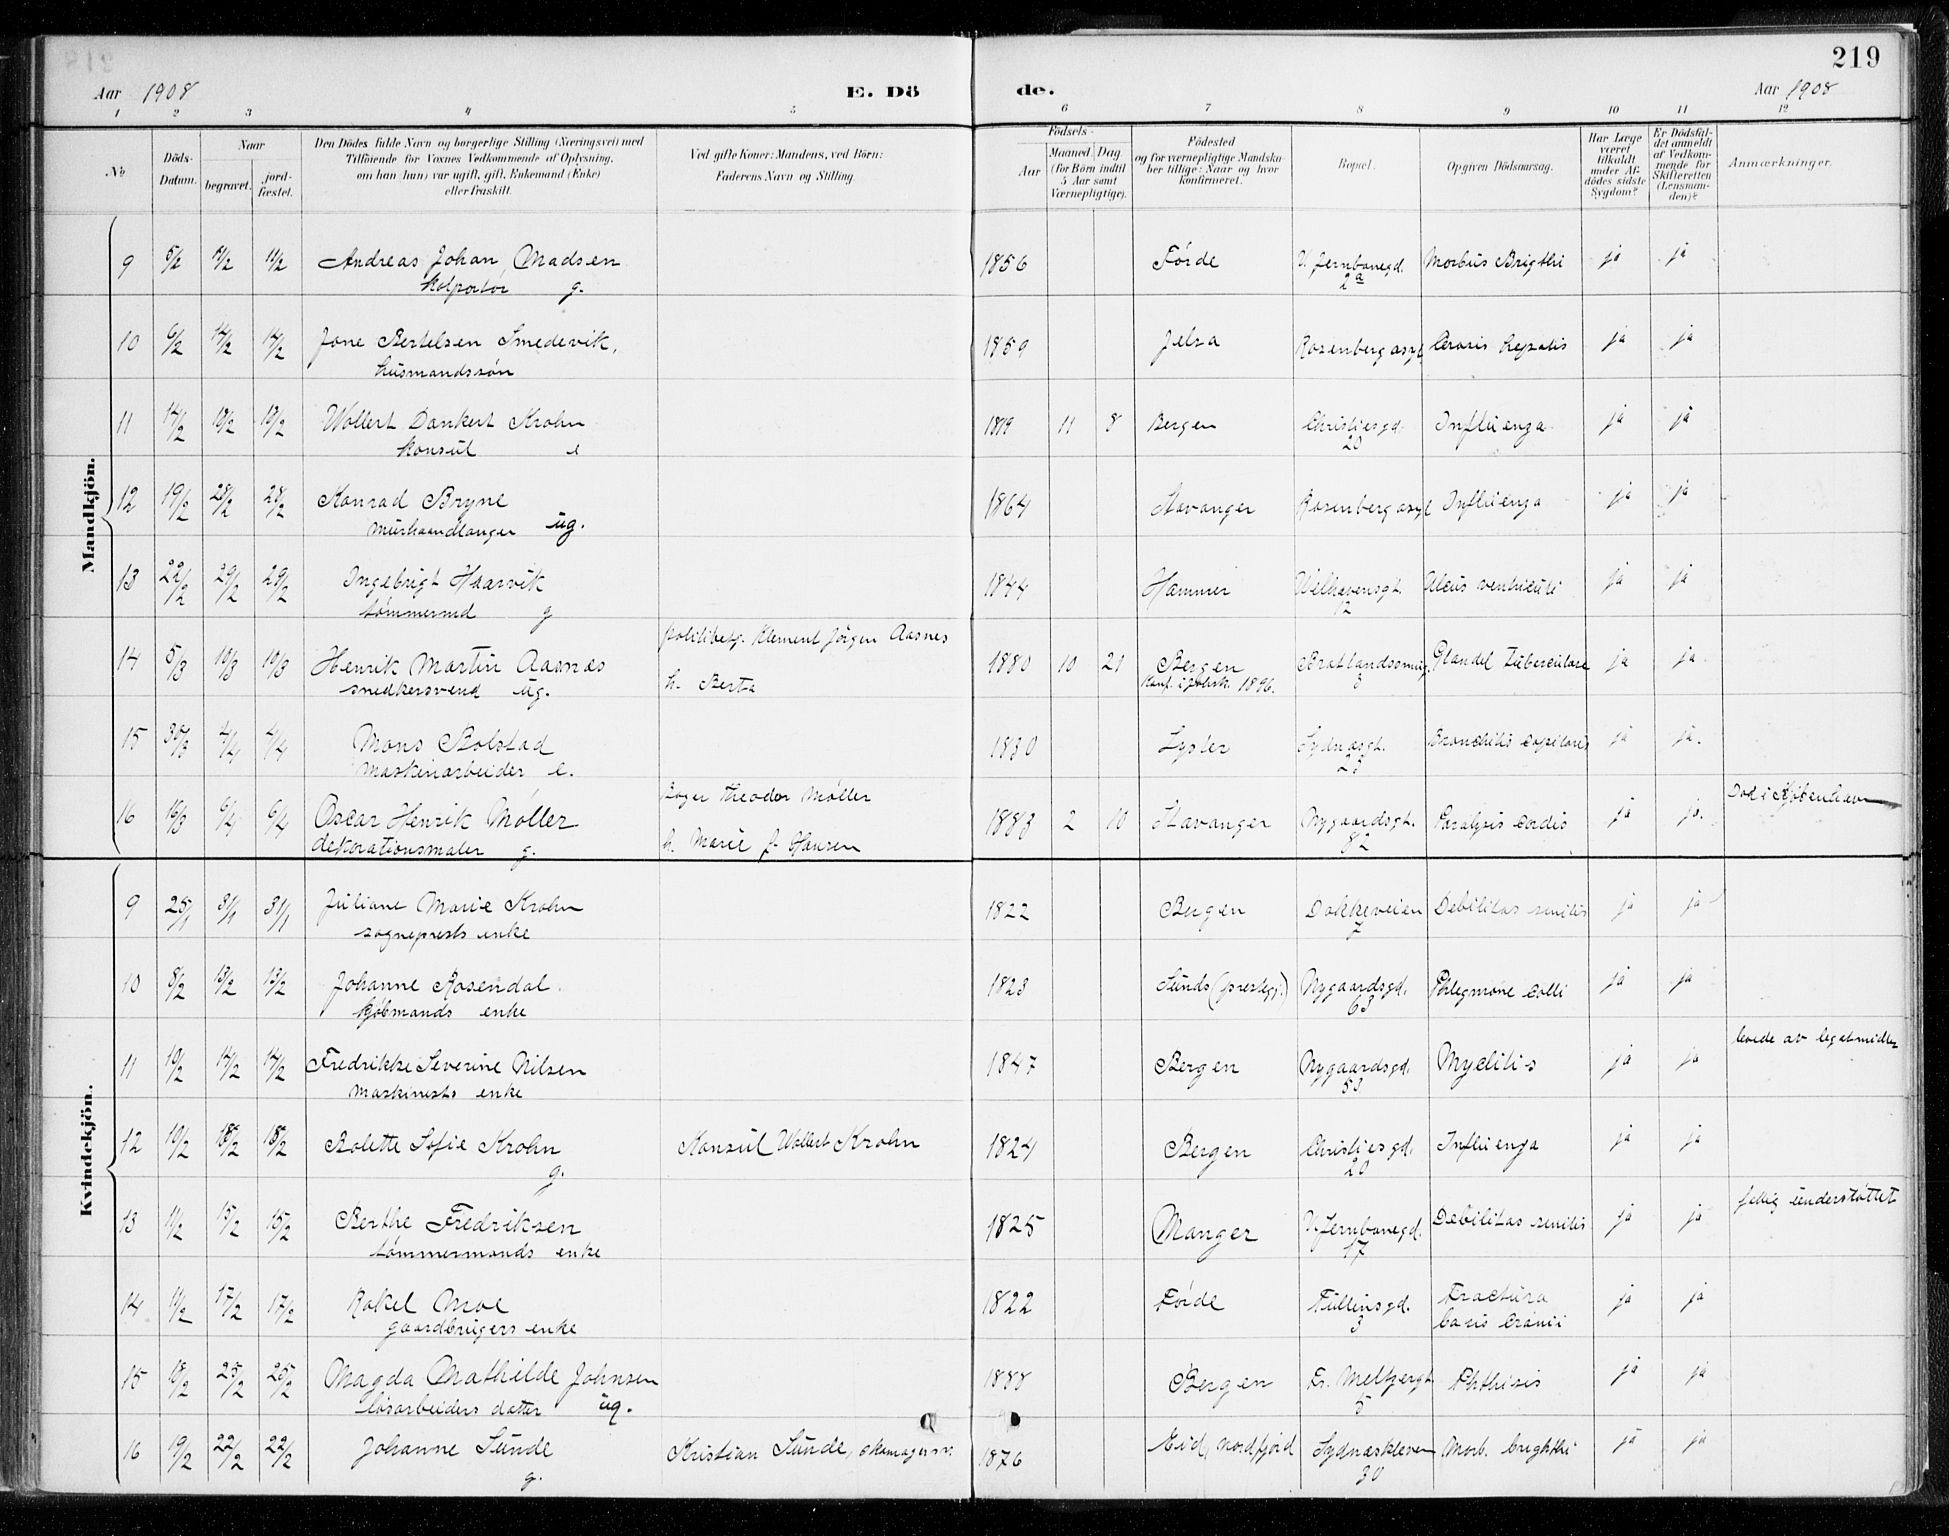 219
Aar 1908 E. Dö de. Aar 1908
1 2 3 4 5 6 7 8 9 10 11 12
No
Döds-Datum.
Naar
begravet.
jord-fæstet.
Den Dödes fulde Navn og borgerlige Stilling (Næringsvei) med
Tilföiende for Voxnes Vedkommende af Oplysning,
om han (hun) var ugift, gift, Enkemand (Enke)
eller fraskilt.
Ved gifte Koner: Mandens, ved Börn:
Faderens Navn og Stilling
Födsels-
Aar
Maaned Dag
(for Börn indtil
5 Aar samt
Værnepligtige).
Födested
og for værnepligtige Mandska-
ber tillige: Naar og hvor
konfirmeret.
Bopæl.
Opgiven Dödsaarsag.
Har Læge
været
tilkaldt
under Af-
dödes sidste
Sygdom?
Er Dödsfal-
det anmeldt
af Vedkom-
mende for
Skifteretten
(Lensman-
den)?
Anmærkninger.
Mandkjön.
9 5/2 11/2 11/2 Andreas Johan Madsen 1856 Førde N. Jernbanegd. Morbus Brigthi ja ja
kolportør g. 2a
10 6/2 14/2 14/2 Jone Bertelsen Smedevik, 1859 Jelsa Rosenberg asyl ja ja
husmandssøn
11 14/2 19/2 19/2 Wollert Dankert Krohn 1819 11 8 Bergen Christiesgd. Influenza ja ja
konsul e 20
12 19/2 28/2 28/2 Konrad Bryne 1864 Stavanger Rosenberg asyl Influenza ja ja
murhaandlanger ug.
13 22/2 29/2 29/2 Ingebrigt Haarvik 1844 Hammer Welhavensgt. Ulcus ventriculi ja ja
tømmermd g 12
politibetj. Klement Jørgen Aasnes
14 5/3 10/3 10/3 Henrik Martin Aasnæs 1880 10 21 Bergen Bratlandssmug Glandel Tuberculose ja ja
snedkersvend ug. h. Berta 1896. 3
15 30/3 4/4 4/4 Mons Bolstad 1830 Lyster Sydnæsgt. Bronchitis capilaris ja ja.
maskinarbeider e. 23
Bager Theodor Møller Død i Kjøbenhavn
16 16/3 6/4 6/4 Oscar Henrik Møller 1883 2 10 Stavanger Nygaardsgt. Paralysis Cordis ja ja.
dekorationsmaler g. h. Marie f. Hansen 82
Kvindekjön.
9 25/1 31/1 31/1 Juliane Marie Krohn 1822 Bergen Dokkeveien Debilitas senilis ja ja
sogneprests enke 7
10 8/2 13/2 13/2 Johanne Rosendal 1823 Sunds (prestegj.) Nygaardsgd. Phlegmone Colli ja ja
kjøbmands enke 63
levede av legatmidler
11 10/2 14/2 14/2 Fredrikke Severine Nilsen 1847 Bergen Nygaardsgd. Myelitis ja ja
maskinists enke 53
12 10/2 18/2 18/2 Bolette Sofie Krohn Konsul Wollert Krohn 1824 Bergen Christiesgd. Influenza ja ja
g. 20
fattig understøttet
13 11/2 15/2 15/2 Berthe Fredriksen 1825 Manger N. Jernbanegd. Debilitas senilis ja ja
tømmermands enke 17
14 11/2 17/2 17/2 Rakel Moe 1822 Førde Fullinsgd. Fractura ja ja
gaardbrugers enke 3 basis Cranii
15 18/2 25/2 25/2 Magda Mathilde Johnsen 1888 Bergen Fr. Meltzergt. Phthisis ja ja
løsarbeiders datter ug. 5
16 19/2 22/2 22/2 Johanne Sunde Kristian Sunde, skomagersv. 1876 Eid, Nordfjord Sydnæskleven Morb. brighthi ja ja
g. 30